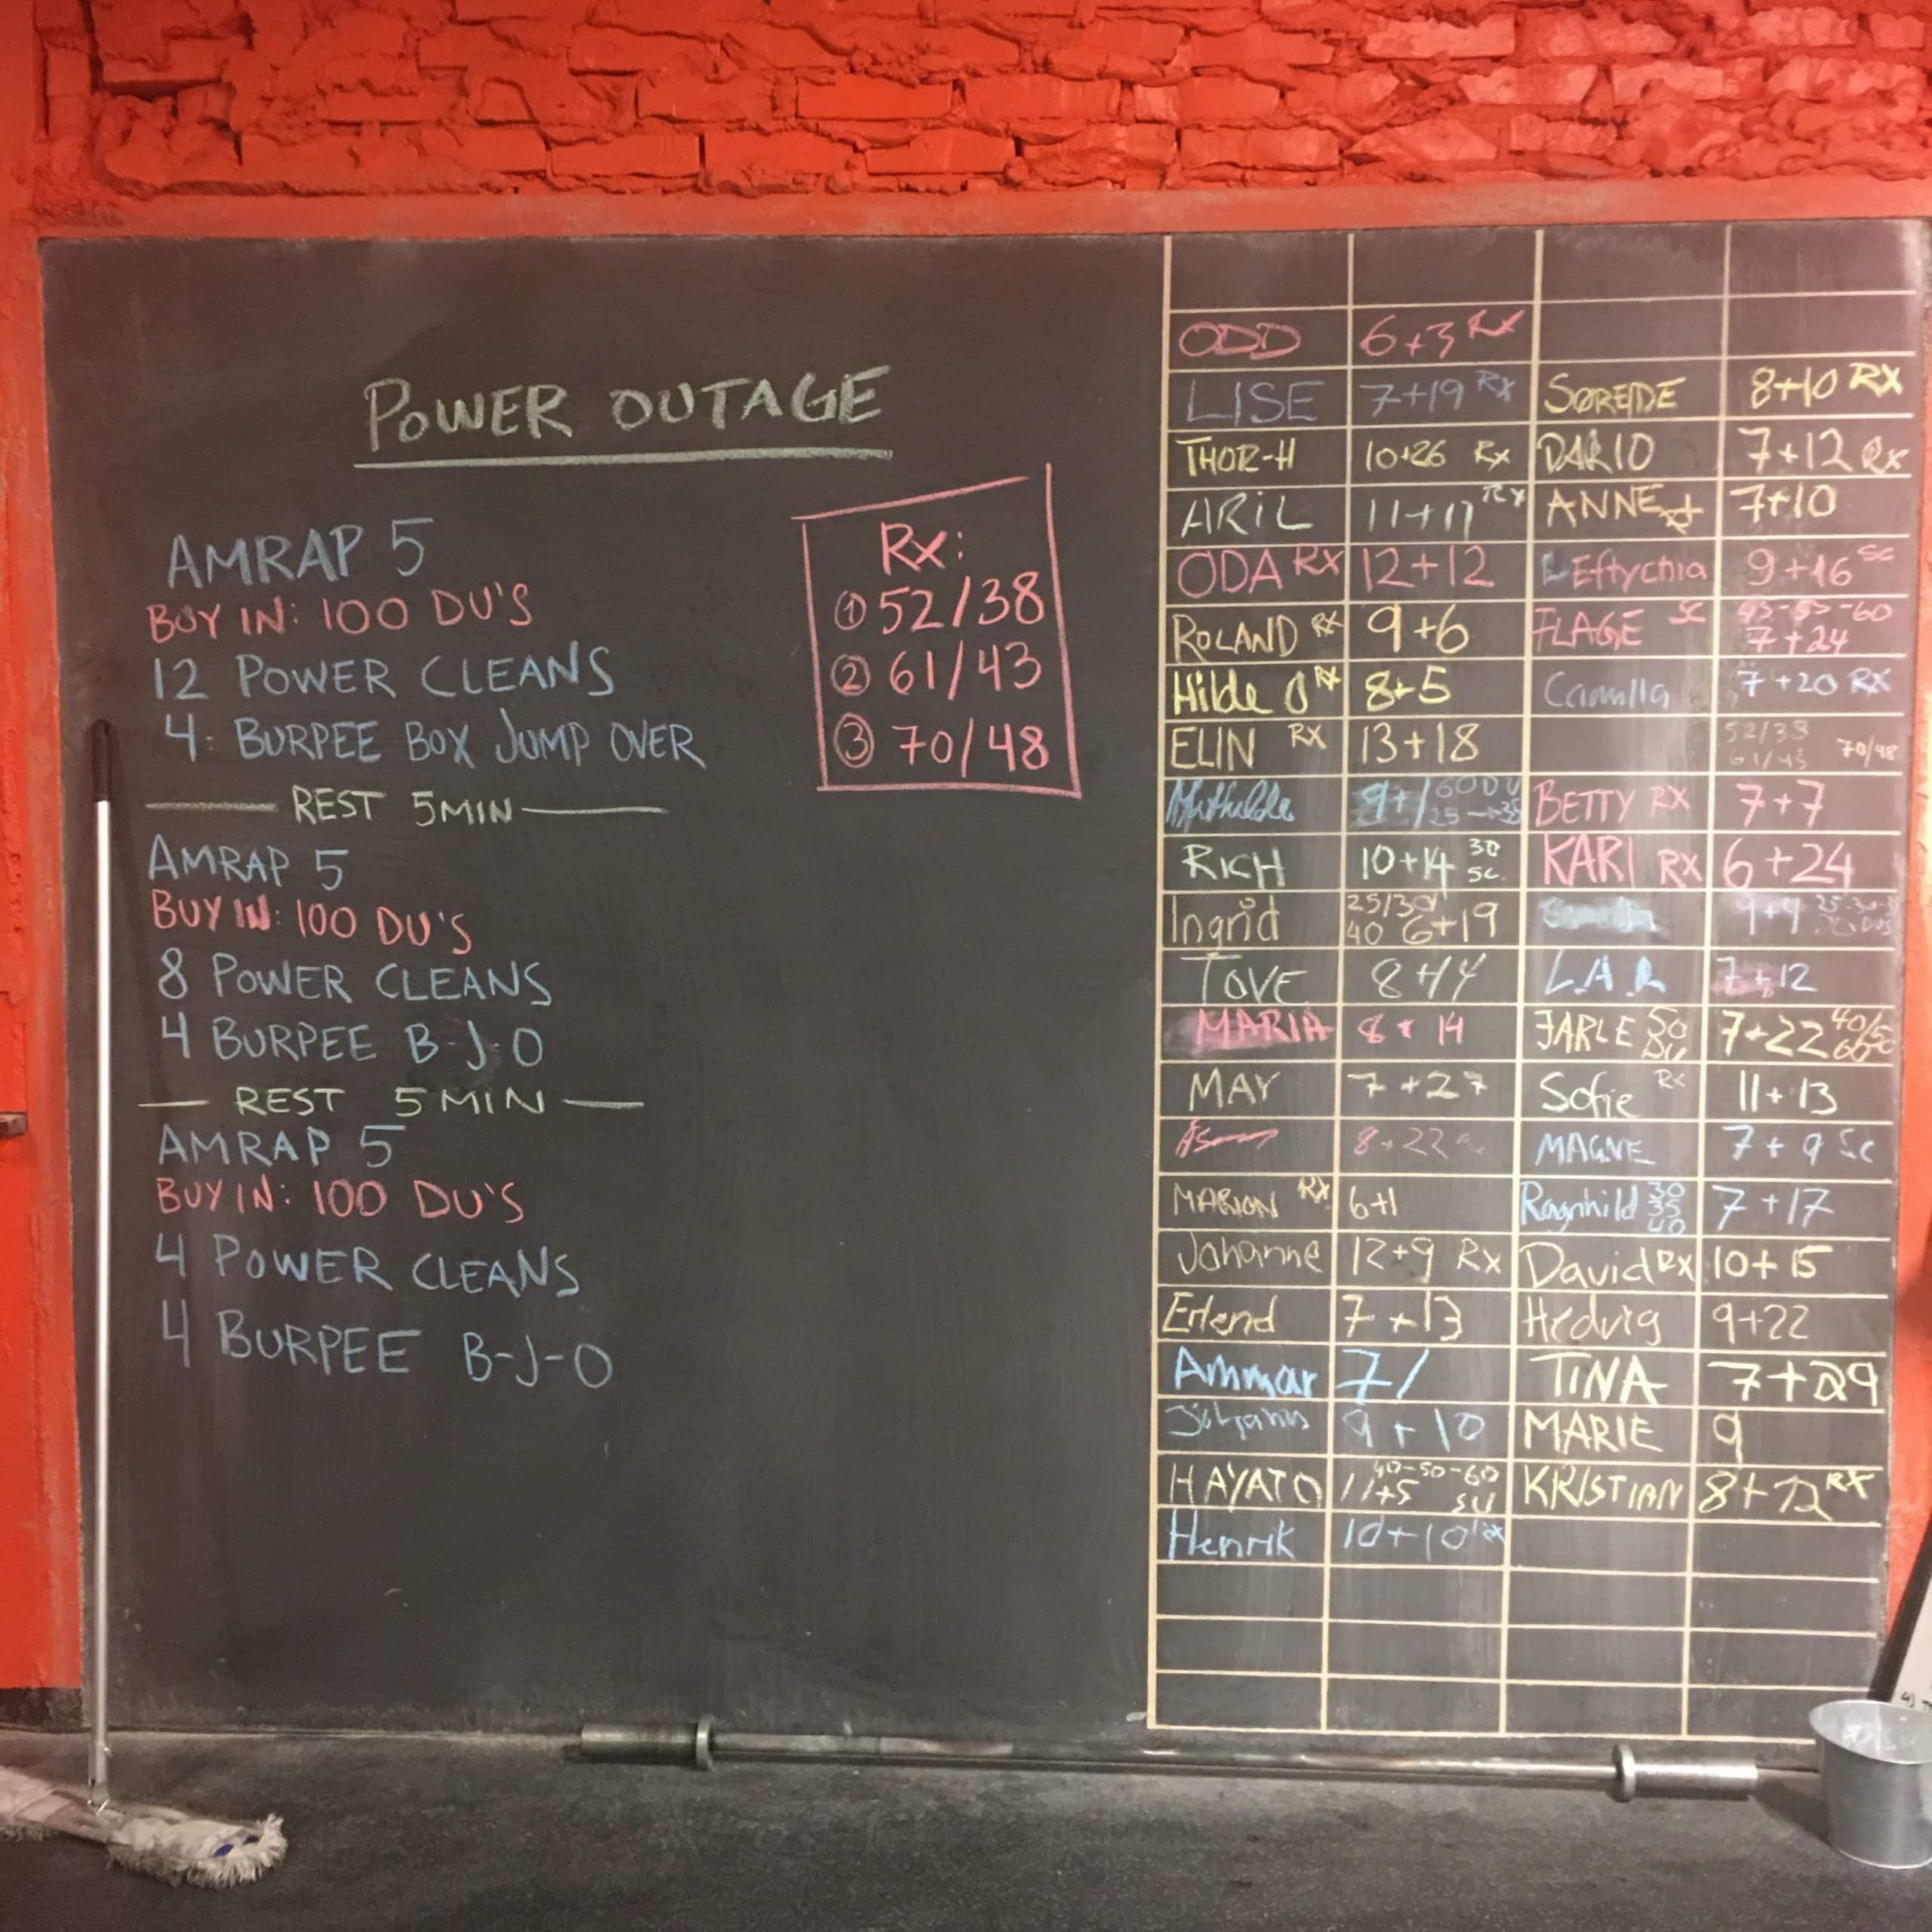 POWER OUTAGE
AMRAP 5
BUY IN: 100 DU'S
12 POWER CLEANS
4: BURPEE BOX JUMP OVER
REST 5MIN
AMRAP 5
BUY IN: 100 DU'S
8 POWER CLEANS
4 BURPEE B-J-O
REST 5MIN
AMRAP 5
BUY IN: 100 DU'S
4 POWER CLEANS
4 BURPEE B-J-O
Rx:
① 52/38
② 61/43
③ 70/48
ODD 6+3 Rx
LISE 7+19 Rx SØREIDE 8+10 RX
THOR-H 10+26 Rx DARIO 7+12 Rx
ARIL 11+11 Rx ANNE 7+10
ODA RX 12+12 Eftychia 9+16 SC
ROLAND RX 9+6 FLAGE SC 45-55-60 7+24
Hilde O RX 8+5 Camilla 7+20 RX
ELIN RX 13+18 52/38 61/43 70/48
Mathilde 9+1 60DU 25→35 BETTY RX 7+7
RICH 10+14 30 SC KARI RX 6+24
Ingrid 25/30/ 40 6+19 9+4
TOVE 8+14 L.A.R 7+12
MARIA 8+14 JARLE 50 DU 7+22 40/50 60 SC
MAY 7+27 Sofie Rx 11+13
8+22 MAGNE 7+9 SC
MARION RX 6+1 Ragnhild 30 35 40 7+17
Johanne 12+9 RX David RX 10+15
Erlend 7+13 Hedvig 9+22
Ammar 7/ TINA 7+29
9+10 MARIE 9
HAYATO 11+5 40-50-60 SU KRISTIAN 8+12 RX
Henrik 10+10 Rx